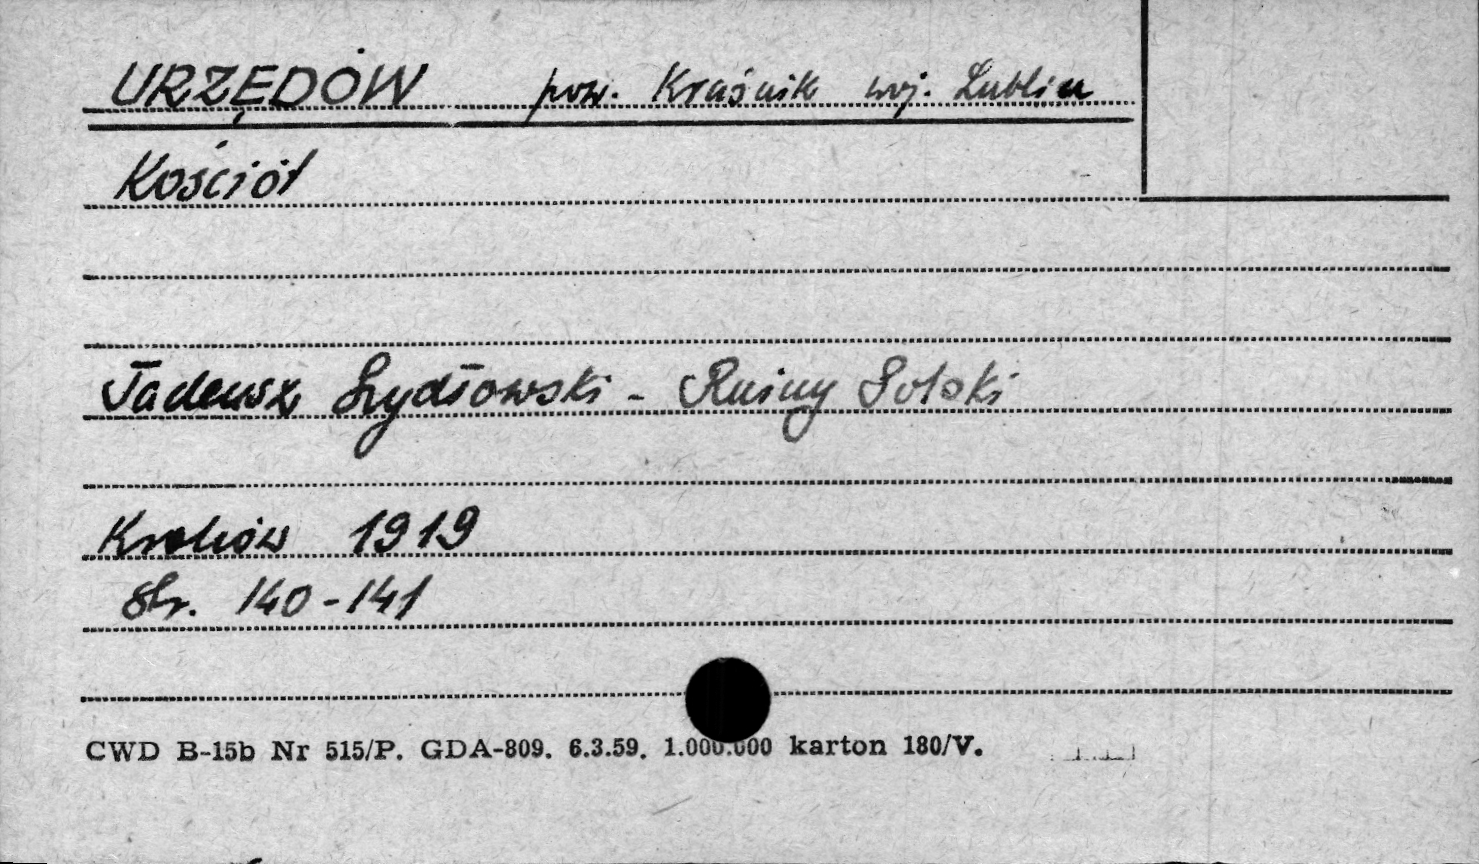 URZĘDÓW pow. Kraśnik woj. Lublin
Kościół
Tadeusz Szydłowski - Ruiny Polski
Kraków 1919
Str. 140-141
CWD B-15b Nr 515/P. GDA-809. 6.3.59. 1.000.000 karton 180/V.